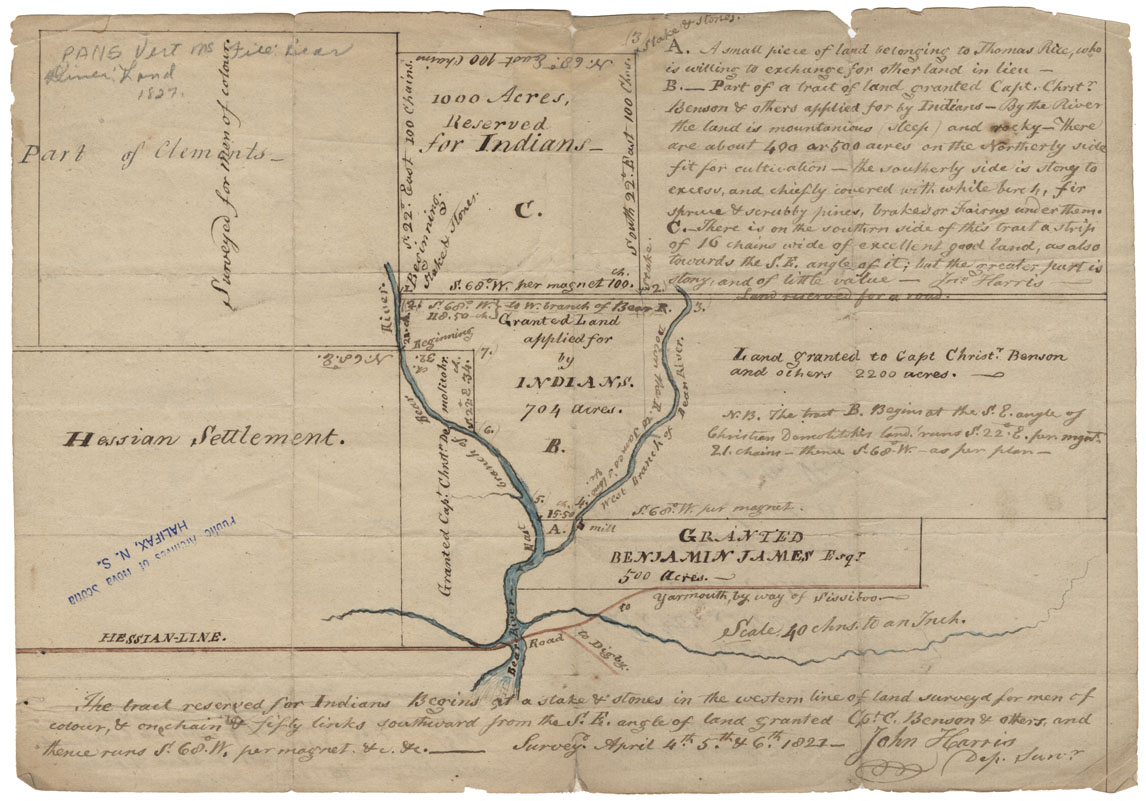 PANS Vert MS File: Bear
River: Land
1827.
Part of Clements—
Surveyed for Men of colour.
N. 68° East 100 Chain
1000 Acres,
Reserved
for Indians—
C.
S. 22° East 100 Chains.
Beginning.
Stake & Stones.
South 22° East 100 Chns.
Stake.
(3. Stake & Stones.
A. A small piece of land belonging to Thomas Rice, who
is willing to exchange for other land in lieu—
B.— Part of a tract of land granted Capt. Christ.r
Benson & others applied for by Indians— By the River
the land is mountanious, steep) and rocky— There
are about 400 or 500 acres on the Northerly side
fit for cultivation— the southerly side is stony to
excess, and chiefly covered with white birch, fir
spruce & scrubby pines, brakes or Fairns under them.
C.— There is on the southern side of this tract a strip
of 16 chains wide of excellent good land, as also
towards the S.E. angle of it; but the greater part is
stony, and of little value— Jno. Harris—
S. 68° W. per magnet 100. ch.
2.
3.
Land reserved for a road.
(2. S. 68° W. } to W. branch of Bear R.
118.50 ch.
21. ch.
River.
Beginning
32. ch
(7.
N. 68. E.
Granted Land
applied for
by
INDIANS.
704 acres.
B.
S. 22° E. 34. ch.
Granted Capt. Christ.r Demolitohr.
East Branch of Bear
(6.
5.
15.50
A.
mill
West Branch of Bear River.
down the R. to James's line.
Land granted to Capt Christ.r Benson
and others 2200 acres.—
N.B. The tract B. Begins at the S.E. angle of
Christian Demolitkis land, runs S. 22° E. per mgnt.
21. chains— thence S. 68° W— as per plan—
Hessian Settlement.
S. 68° W. per magnet.
GRANTED
BENJAMIN JAMES Esqr
500 Acres.—
Public Archives of Nova Scotia
HALIFAX, N. S.
to Yarmouth, by way of Sissiboo.—
Scale 40 chns. to an Inch.
HESSIAN-LINE.
Bear River
Road to Digby.
The tract reserved for Indians Begins at a stake & stones in the western line of land surveyd for men of
colour, & one chain & fifty links southward from the S.E. angle of land granted Cpt. C. Benson & others, and
thence runs S. 68° W. per magnet. &c. &c.— Survey.d April 4th 5th & 6th 1821— John Harris
Dep. Surv.r